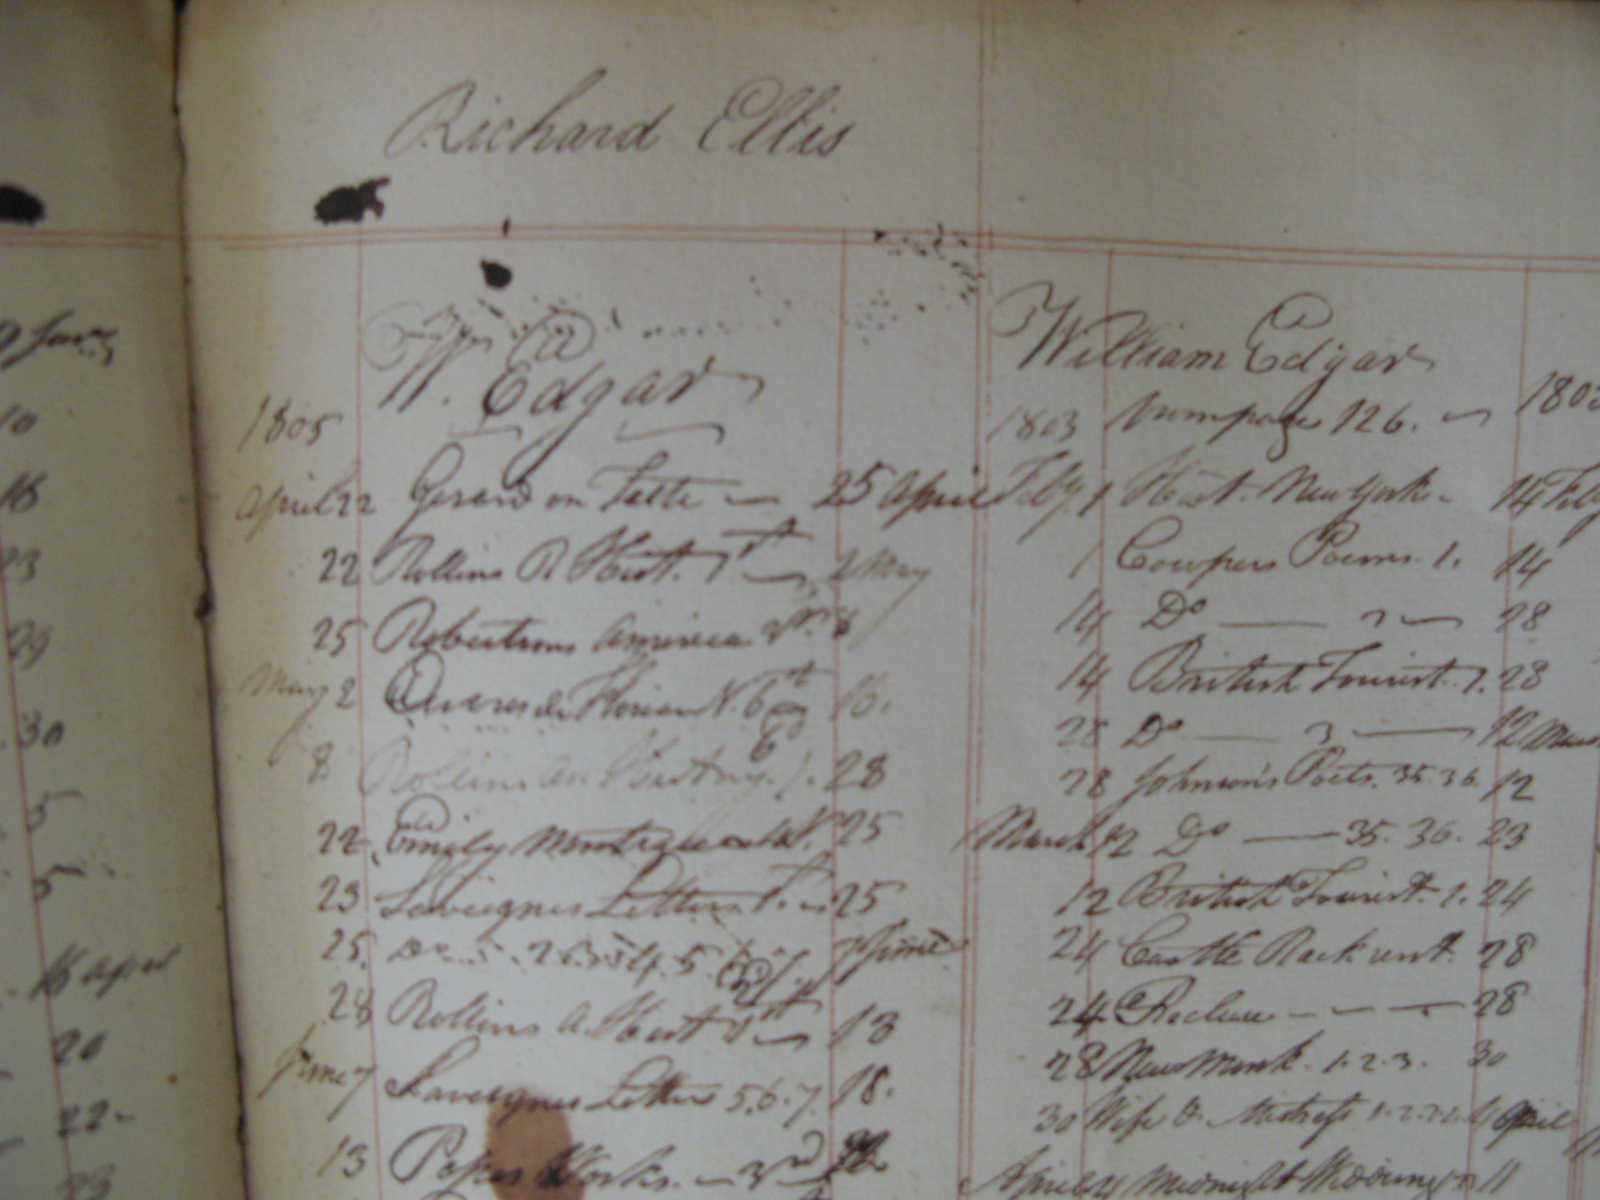 Richard Ellis
W. Edgar
1805
April 22 Gerard on Taste 25 April
22 Rollins A Hist. 1st 2 May
25 Robertsons America 2d. 8
May 2 Oeuvres de Florian N. 6th 16.
8 Rollins An. History. 28
22 Emily Montague 25
23 Saveignes Letters 1. 25
25. Do 4. 5. 7 June
28 Rollins A. Hist 13
June 7 Saveignes Letters 5. 6. 7. 18.
13 Popes Works. 3rd
William Edgar
1803 from page 126. 1803
Feby. 1 Hist. New York 14 Feby
1 Cowpers Poems. 1. 14
14 Do 2 28
14 British Tourist. 1. 28
28 Do 3 12 March
28 Johnson's Poets. 35. 36. 12
March 12 Do 35. 36. 23
12 British Tourist. 1. 24
24 Castle Rackrent. 28
24 Recluse 28
28 New Monk. 1. 2. 3. 30
30 Wife & Mistress 1. 2. April
April 4 Midnight Wedding 11
10
16
23
29
30
5
5
16 April
20
22